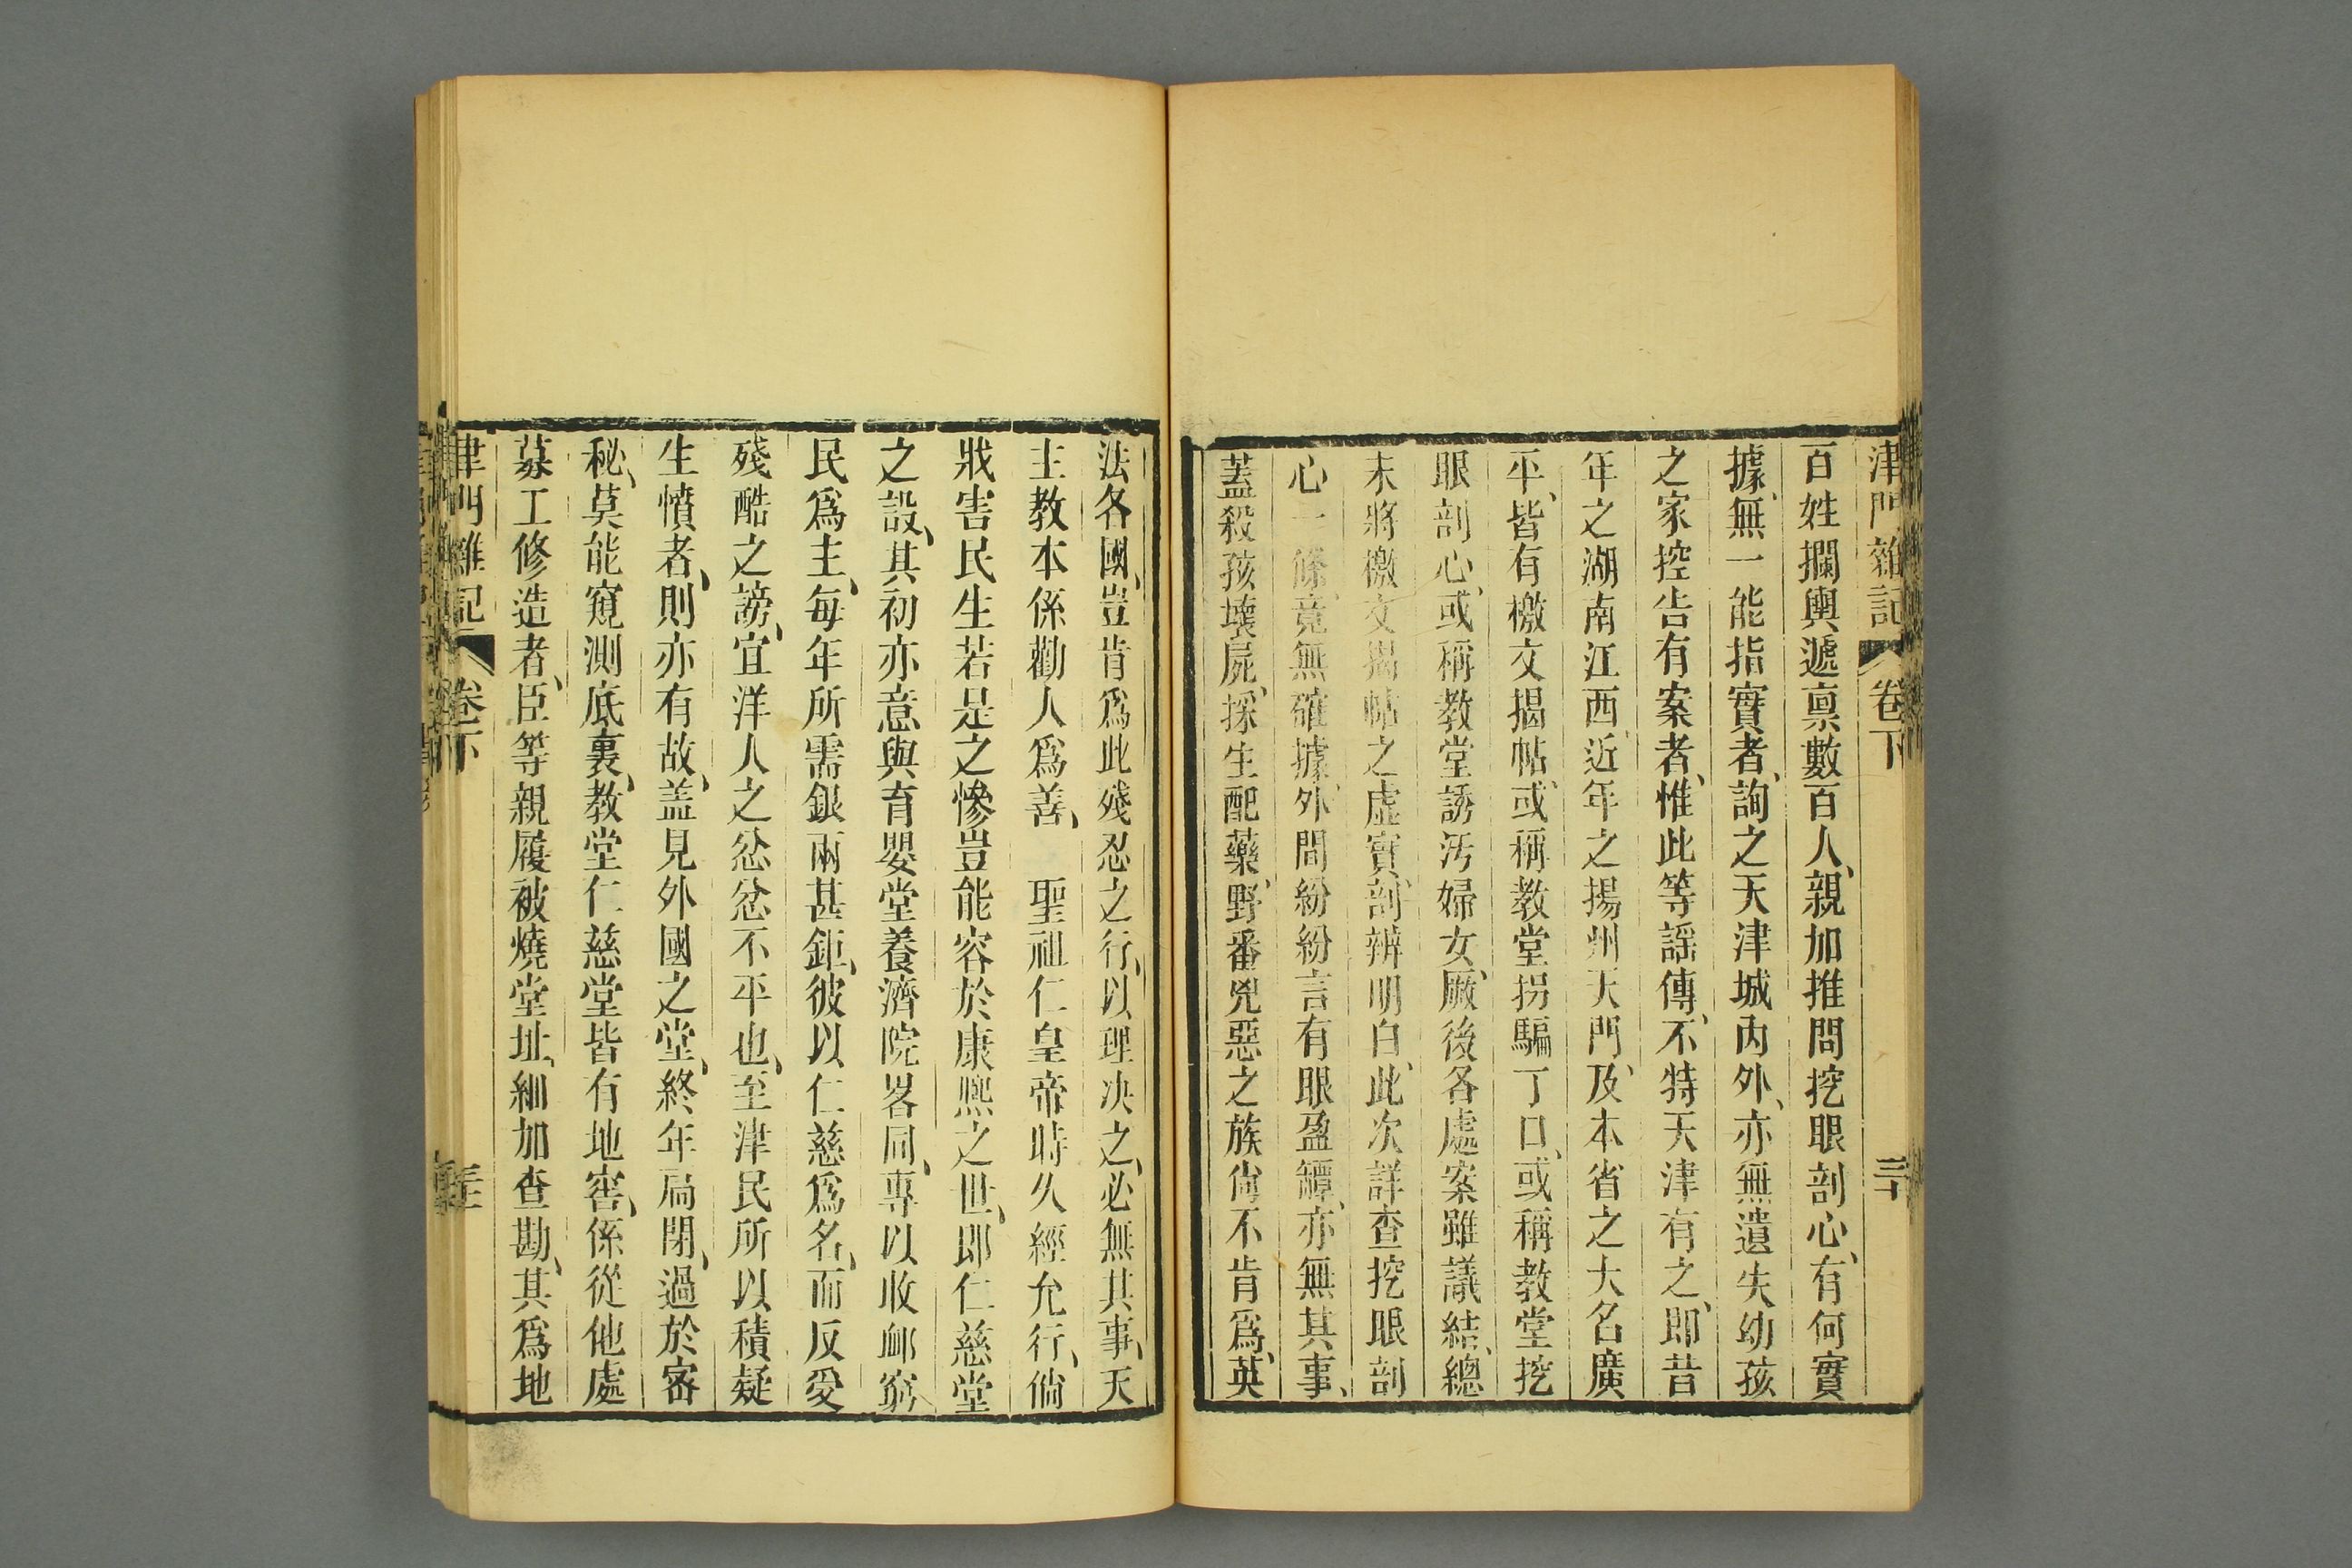 津門雜記 卷下 三十
百姓攔輿遞禀數百人、親加推問挖眼剖心、有何實
據、無一能指實者、詢之天津城內外、亦無遺失幼孩
之家控告有案者、惟此等謡傳、不特天津有之、即昔
年之湖南江西、近年之揚州天門、及本省之大名廣
平、皆有檄文揭帖、或稱教堂拐騙丁口、或稱教堂挖
眼剖心、或稱教堂誘汚婦女、厥後各處案雖議結、總
未將檄文揭帖之虛實、剖辨明白、此次詳查挖眼剖
心一條、竟無確據、外間紛紛言有眼盈罈、亦無其事、
蓋殺孩壞屍、採生配藥、野番兇惡之族尙不肯爲、英
法各國、豈肯爲此殘忍之行、以理决之、必無其事、天
主教本係勸人爲善、 聖祖仁皇帝時久經允行、倘
戕害民生若是之慘豈能容於康熙之世、即仁慈堂
之設、其初亦意與育嬰堂養濟院畧同、專以收卹窮
民爲主、每年所需銀兩甚鉅、彼以仁慈爲名、而反受
殘酷之謗、宜洋人之忿忿不平也、至津民所以積疑
生憤者、則亦有故、盖見外國之堂、終年扃閉、過於密
秘、莫能窺測底裏、教堂仁慈堂皆有地窖、係從他處
募工修造者、臣等親履被燒堂址、細加查勘、其爲地
津門雜記 卷下